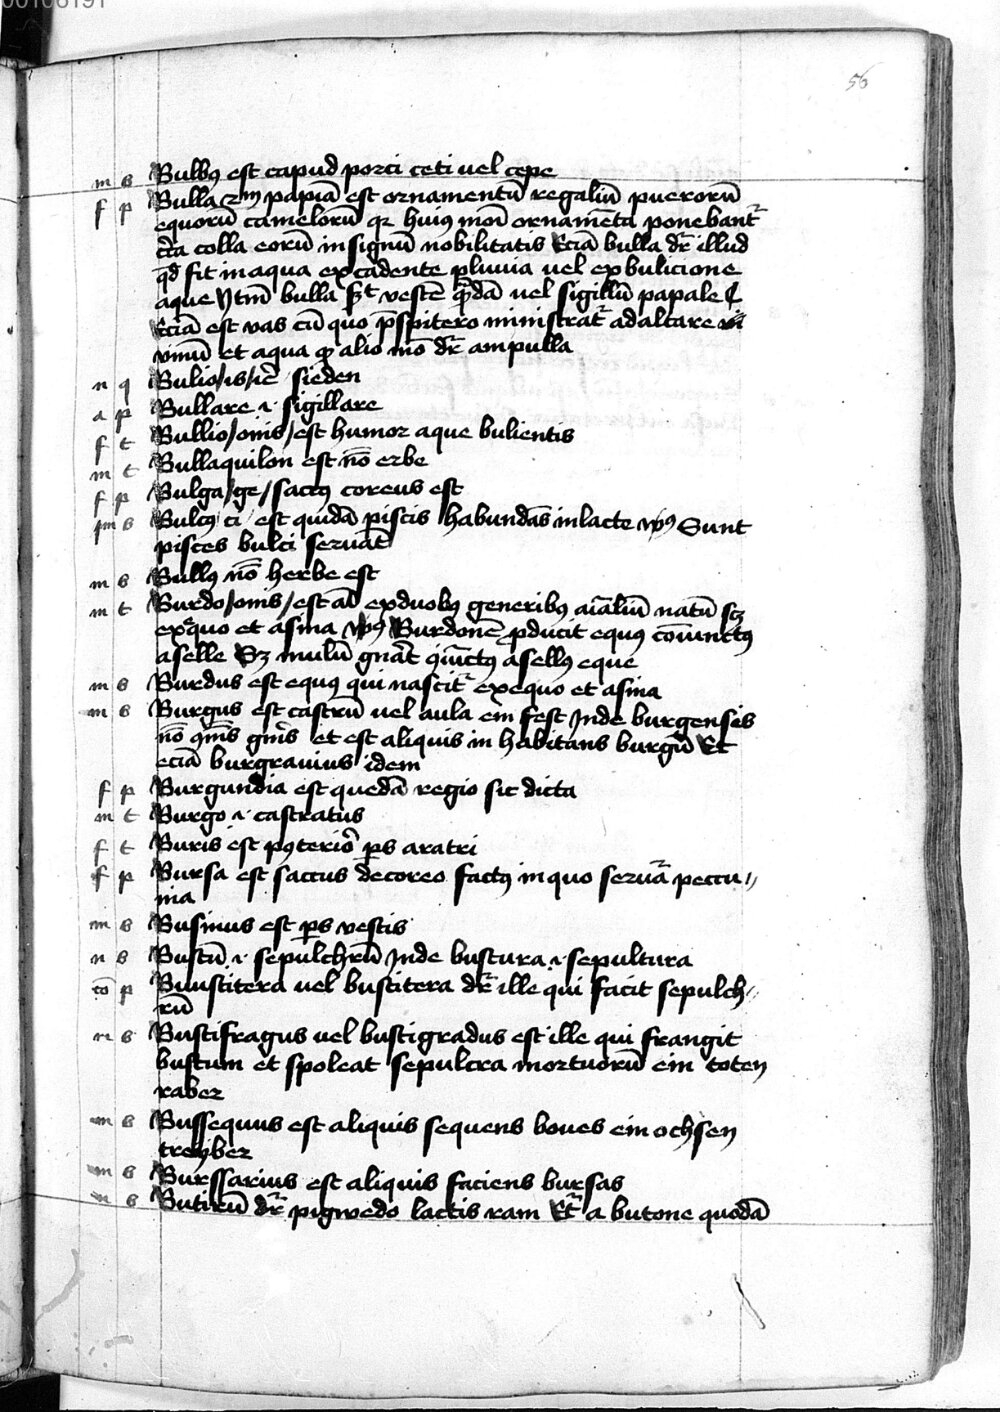 00106191
56
m s Bulbꝰ est capud porci ceti vel cepe
f p Bulla ẜm papiā est ornamentū regaliū puerorū
equorū camelorū qꝛ huiꝰ moī ornamēta ponebantᷣ
cͬca colla eorū in signū nobilitatis Eciā bulla dᷣr illud
qd̄ fit in aqua ex cadente pluuia uel ex bulicione
aque Itm̄ bulla vestē qͣdā uel sigillū papale
Eciā est vas cū quo prespitero ministratᷣ ad altare
vinū et aqua alio mō dᷣr ampulla
n q Bulio/is/ie sieden
a p Bullare .i. sigillare
f t Bullio/onis/est humor aque bulientis
m t Bullaquilon est nō erbe
f p Bulga/ge/saccꝰ coreus est
m s Bulcꝰ ci est quidā piscis habundās in lacte vꝰ Sunt
pisces bulci seruāt
m s Bullꝰ nō herbe est
m t Burdo/onis/est aīal ex duobꝰ generibꝰ aīaliū natū sꝫ
ex equo et asina vꝰ Burdonē ꝓducit equꝰ coniunctꝰ
aselle Sꝫ mulū gnāt iūctꝰ asellꝰ eque
m s Burdus est equꝰ qui nascitᷣ ex equo et asina
m s Burgus est castrū uel aula ein fest Inde burgensis
nō gn̄is et est aliquis in habitans burgū Et
eciā burgrauius idem
f p Burgundia est quedā regio sic dicta
m t Burgo .i. castratus
f t Buris est pꝰterior ꝑs aratri
f p Bursa est saccus de coreo factꝰ in quo seruatᷣ peccu//
nia
m s Businus est ꝑs vestis
n s Bustū .i. sepulchrū Inde bustura .i. sepultura
cō p Buustitera uel bustitera dᷣr ille qui facit sepulch//
rū
m s Bustifragus uel bustigradus est ille qui frangit
bustum et spoleat sepulcra mortuorū ein toten
raber
m s Bussequus est aliquis sequens boues ein ochsen
treyber
m s Burssarius est aliquis faciens bursas
n s Butirū dᷣr pigwedo lactis ram Etᷣ a butone quodā